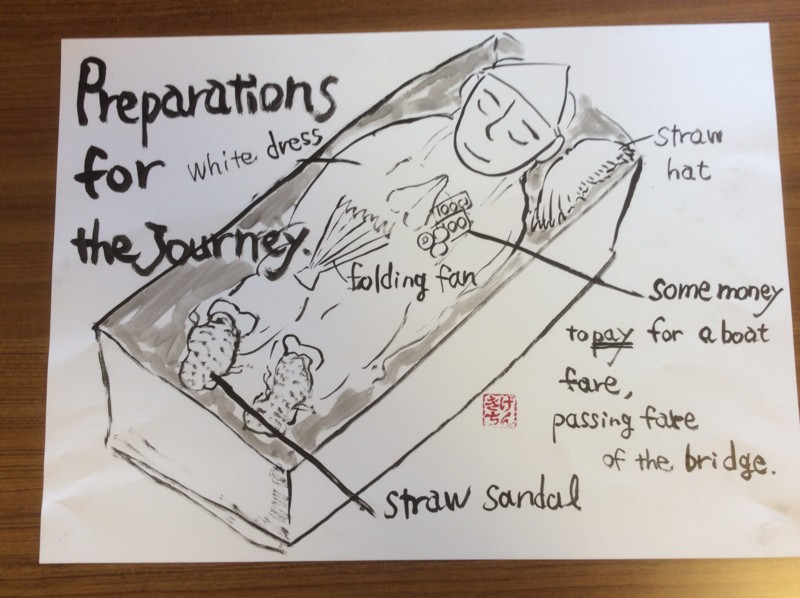 Preparations
for
the Journey.
white dress
straw
hat
folding fan
some money
to pay for a boat
fare,
passing fare
of the bridge.
straw sandal
げん
きち